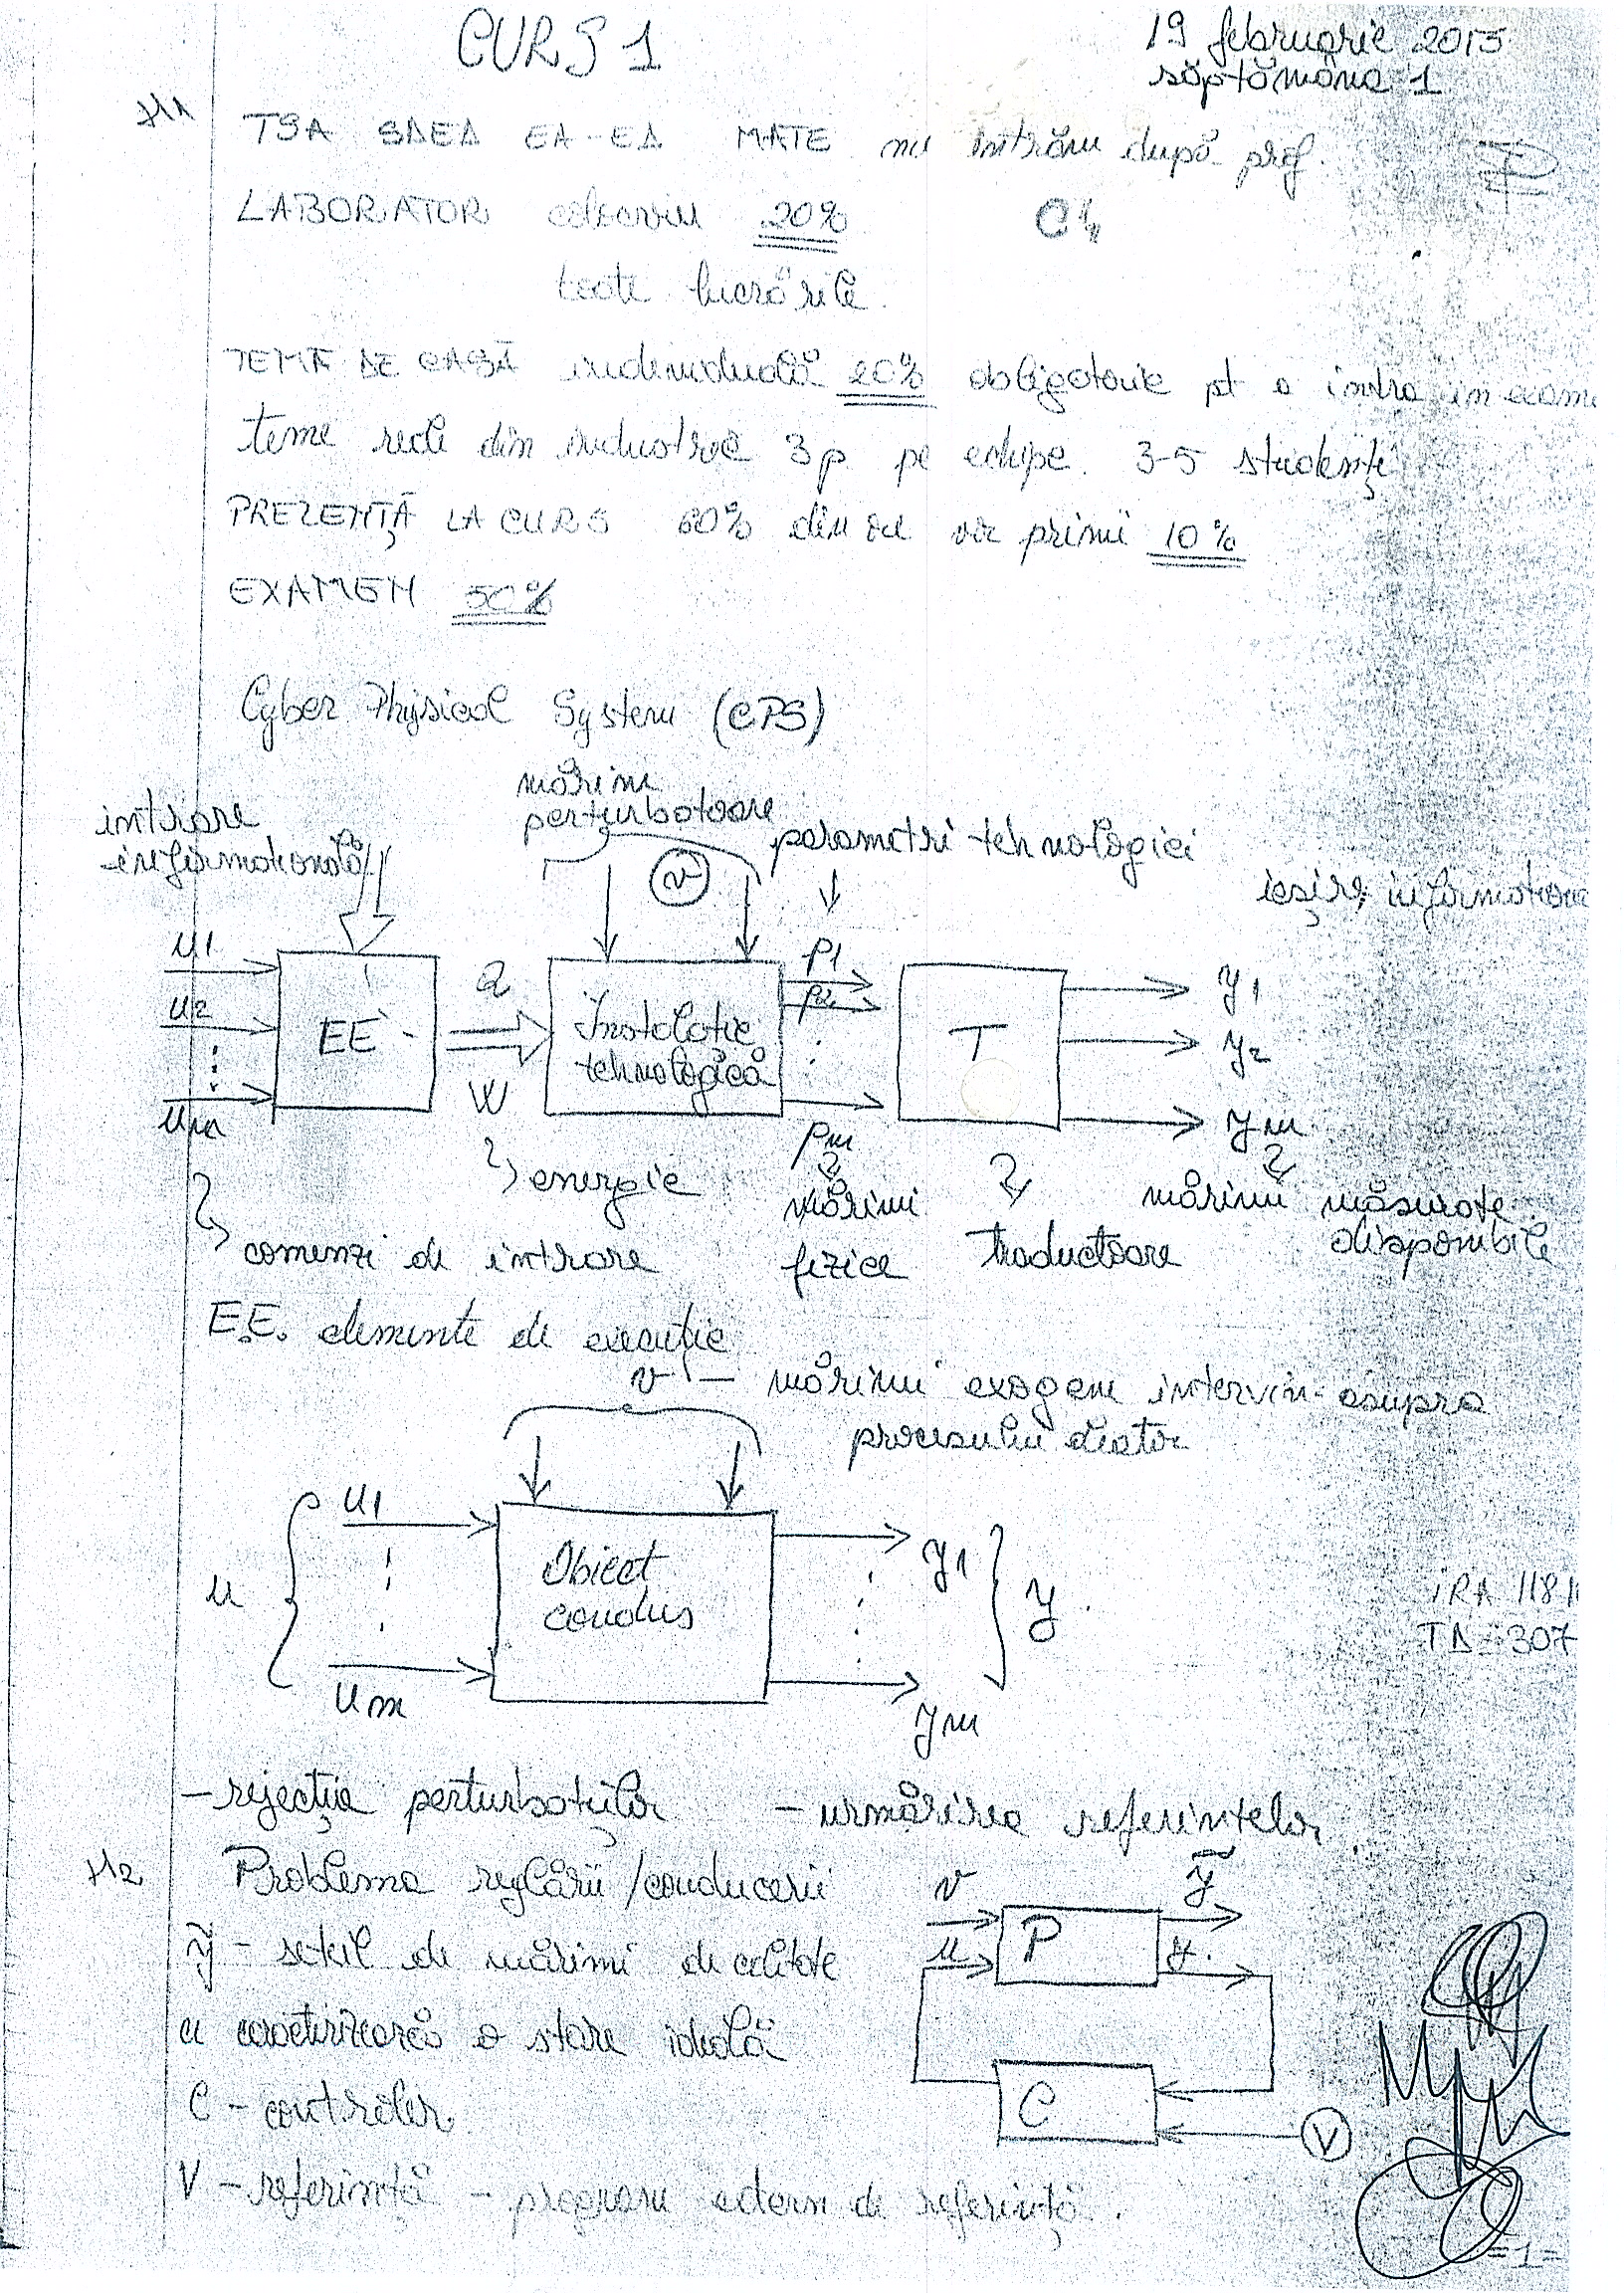 CURS 1
19 februarie 2015
săptămâna 1
H1
TSA SDED EA-ED MATE nu intrăm după prof.
LABORATOR colocviu 20%
toate lucrările
TEMĂ DE CASĂ individuală 20% obligatorie pt a intra in exam
teme reale din industrie 3p pe echipe 3-5 studenți
PREZENȚĂ LA CURS 60% din ele vor primii 10%
EXAMEN 50%
Cyber Physical System (CPS)
intrare
informațională
mărimi
perturbatoare
v
parametri tehnologici
ieșire informațion
u1
u2
um
EE
Q
W
Instalație
tehnologică
p1
p2
pm
T
y1
y2
ym
energie
comenzi de intrare
mărimi
fizice
traductoare
mărimi măsurate
disponibile
E.E. elemente de execuție
v – mărimi exogene intervin asupra
procesului
u
u1
um
Obiect
condus
y1
ym
y
IRA 118
TD 307
– rejecția perturbațiilor – urmărirea referințelor
H2
Problema reglării/conducerii
ỹ – setul de mărimi de calitate
a caracterizează o stare ideală
C – controler
V – referință – program extern de referință.
v
u
P
ỹ
y
C
V
=1=